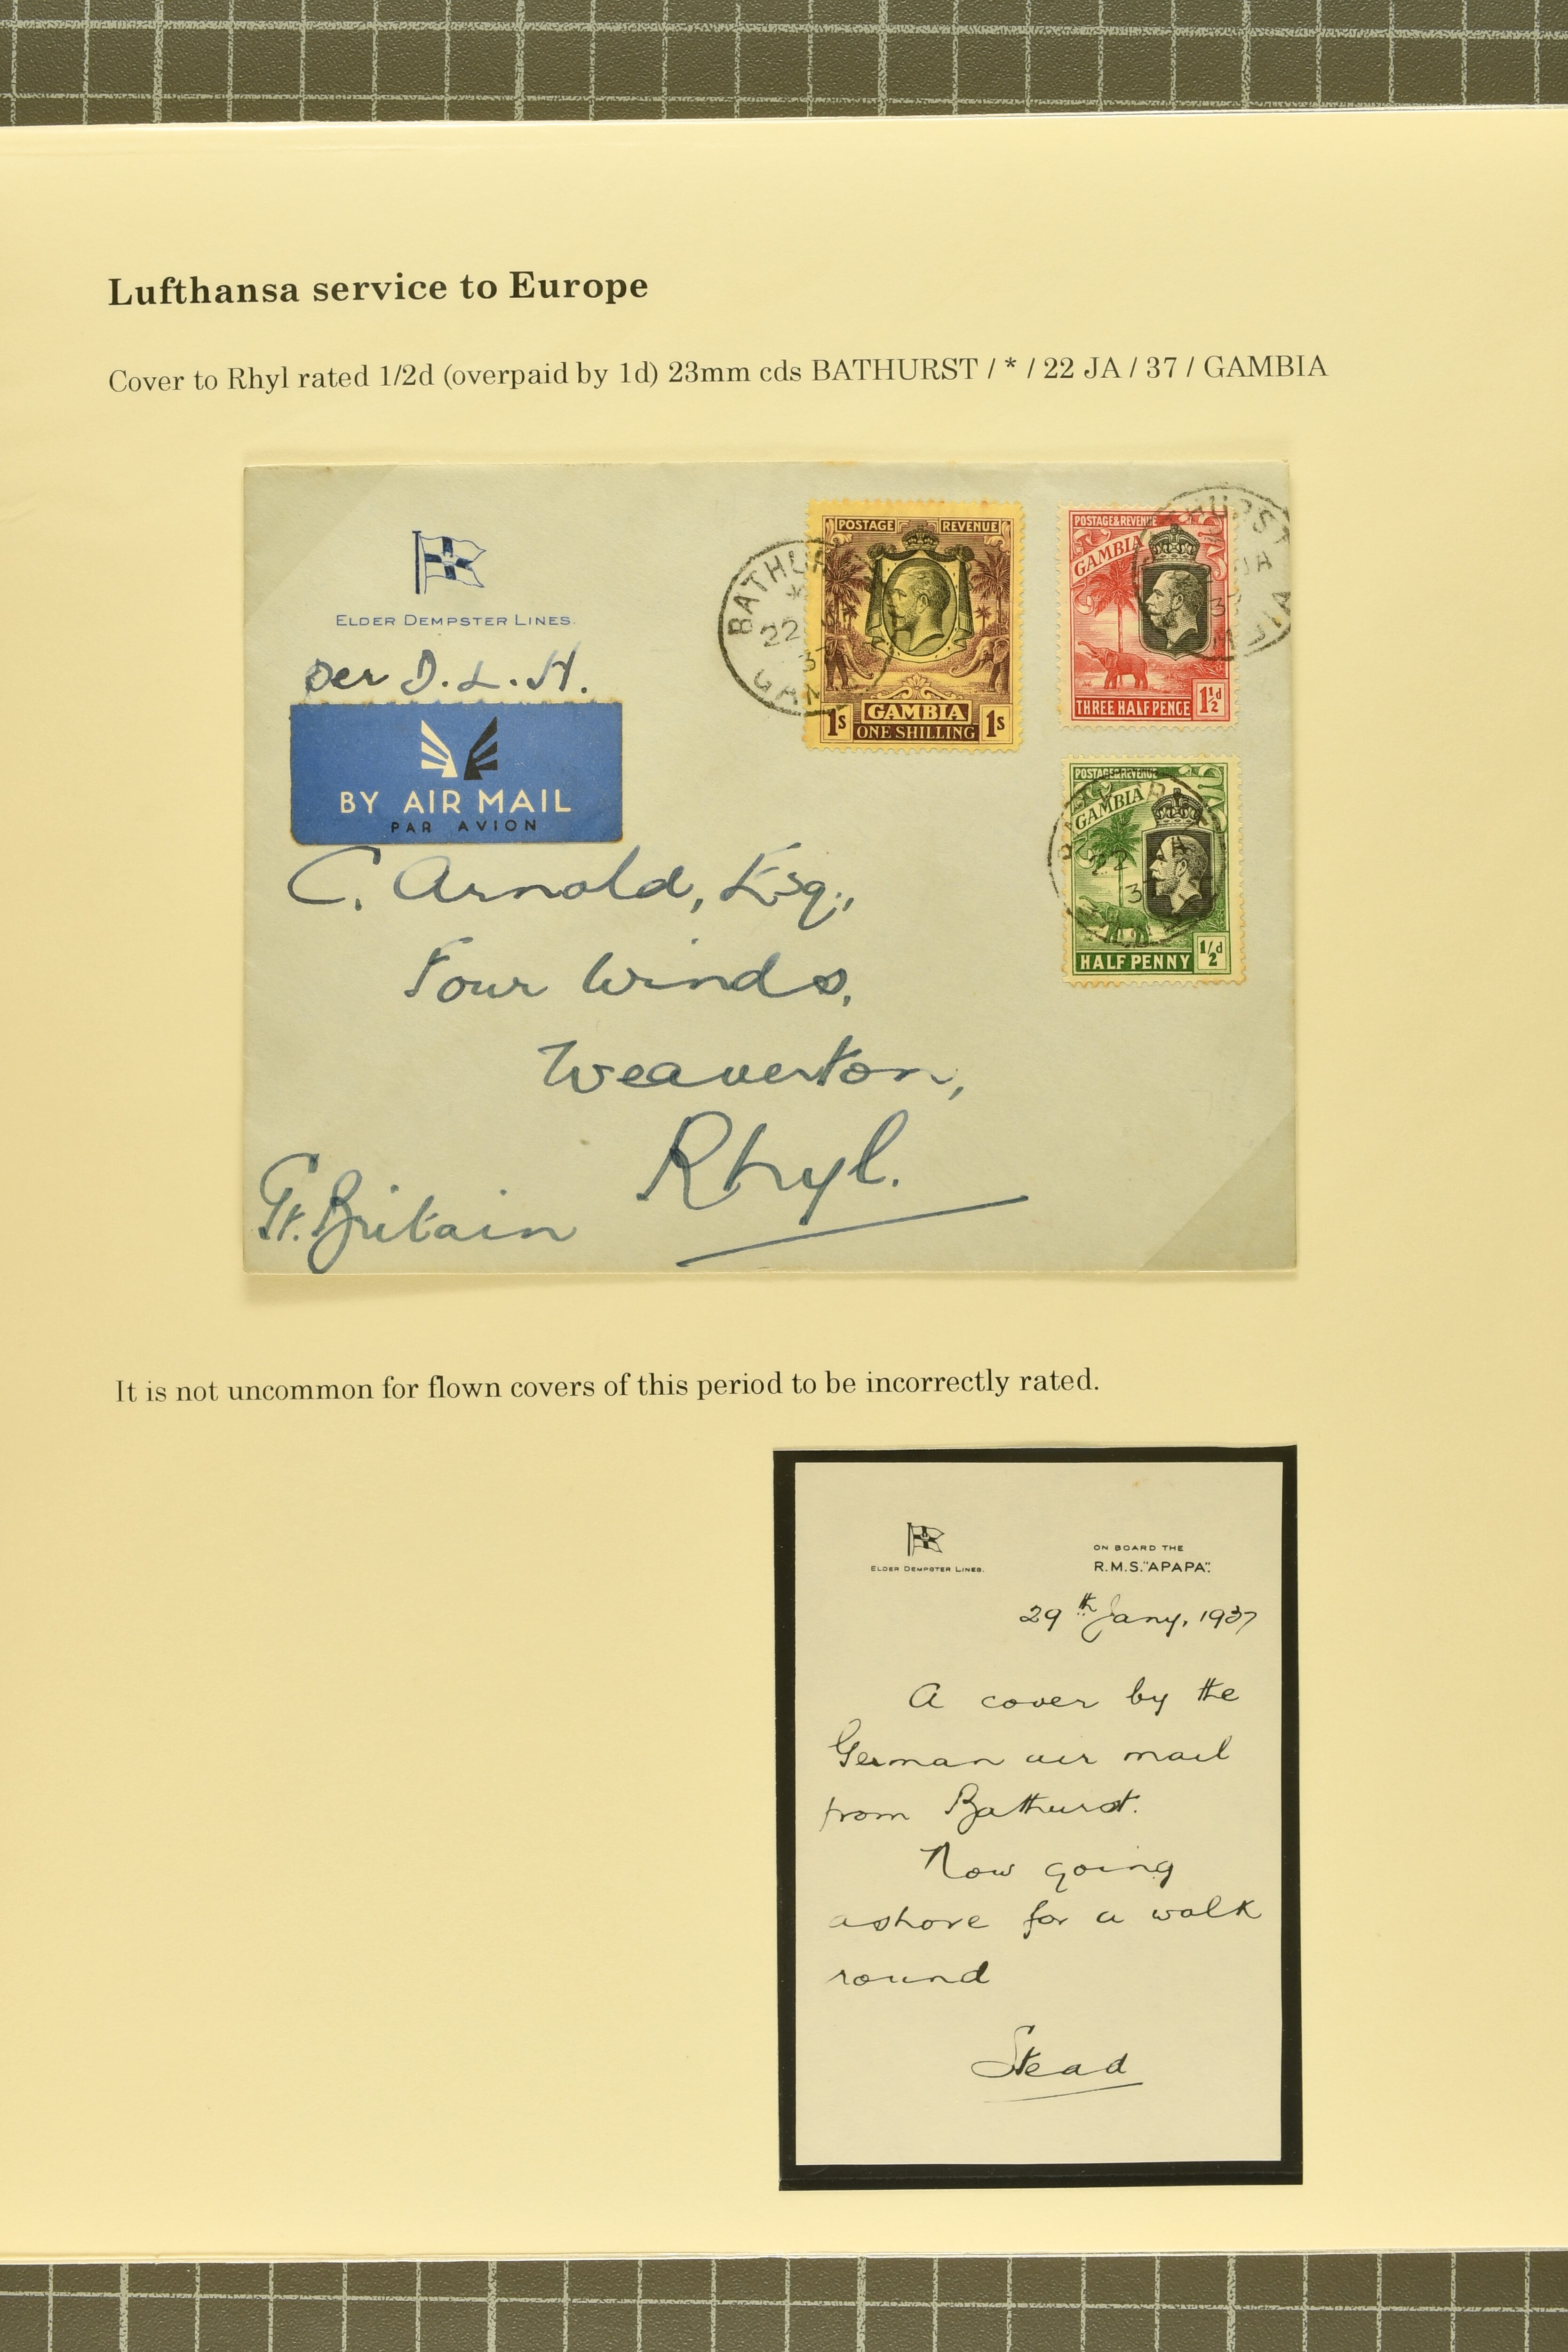 Lufthansa service to Europe
Cover to Rhyl rated 1/2d (overpaid by 1d) 23mm cds BATHURST / * / 22 JA / 37 / GAMBIA
ELDER DEMPSTER LINES.
per D.L.H.
BY AIR MAIL
PAR AVION
BATHU
*
22
37
GAM
POSTAGE REVENUE
1s GAMBIA 1s
ONE SHILLING
POSTAGE & REVENUE
GAMBIA
THREE HALFPENCE 1½d
HURST
JA
POSTAGE & REVENUE
GAMBIA
HALFPENNY ½d
22 JA
37
C. Arnold, Esq.,
Four Winds,
Weaverton,
Rhyl.
Gt. Britain
It is not uncommon for flown covers of this period to be incorrectly rated.
ELDER DEMPSTER LINES.
ON BOARD THE
R.M.S. "APAPA".
29th Jany, 1937
A cover by the
German air mail
from Bathurst.
Now going
ashore for a walk
round
Stead